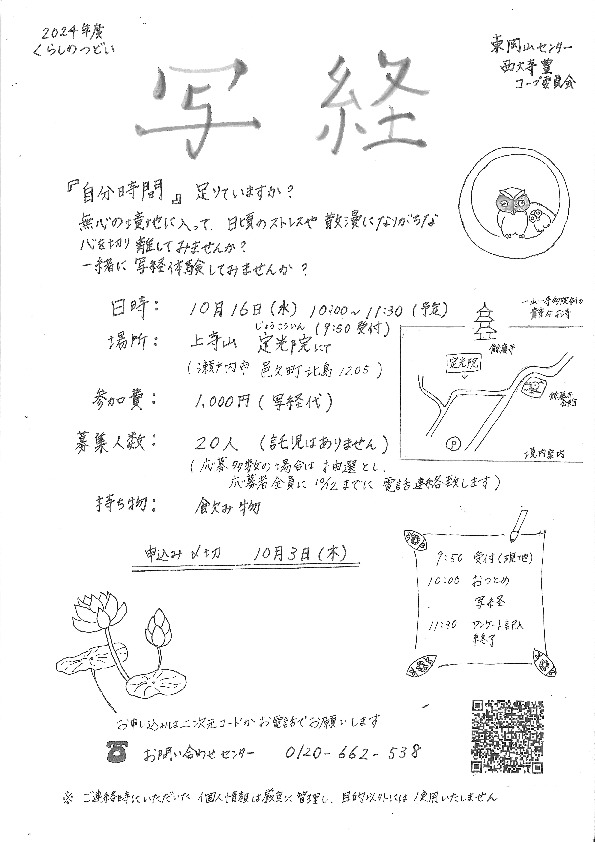 2024年度
くらしのつどい
東岡山センター
西大寺豊
コープ委員会
写 経
『自分時間』 足りていますか？
無心の境地に入って、日頃のストレスや散漫になりがちな
心を切り離してみませんか？
一緒に写経体験してみませんか？
日時： 10月16日(水) 10:00~11:30(予定)
(9:50受付)
場所： 上寺山 定光院にて
じょうこういん
(瀬戸内市 邑久町北島1205)
参加費： 1,000円(写経代)
募集人数： 20人 (託児はありません)
(応募多数の場合は抽選とし、
応募者全員に10/12までに電話連絡致します)
持ち物： 飲み物
申込み〆切 10月3日(木)
定光院
P
境内案内
9:50 受付(現地)
10:00 おつとめ
写経
11:30 アンケート記入
終了
お申し込みは二次元コードかお電話でお願いします
お問い合わせセンター 0120-662-538
※ ご連絡時にいただいた個人情報は厳重に管理し、目的以外には使用いたしません